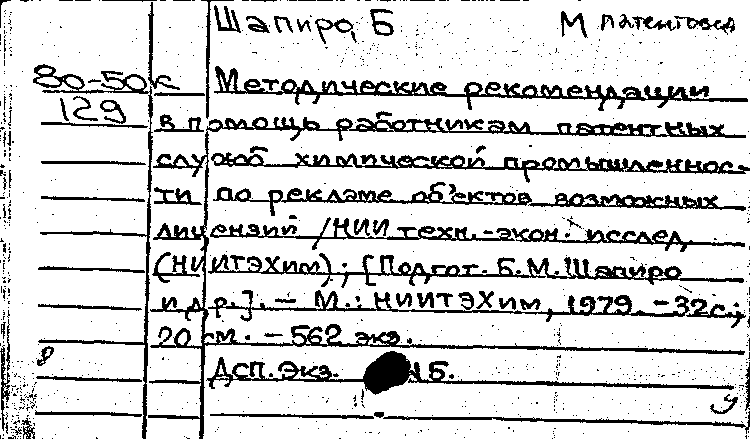 Шапиро, Б М патентовед
80-50к Методические рекомендации
129 в помощь работникам патентных
служб химической промышленнос-
ти по рекламе объектов возможных
лицензий /НИИ техн.-экон. исслед.
(НИИТЭХим); [Подгот. Б.М. Шапиро
и др.]. – М.: НИИТЭХим, 1979. – 32с.;
20 см. – 562 экз.
ДСП. Экз. Б.